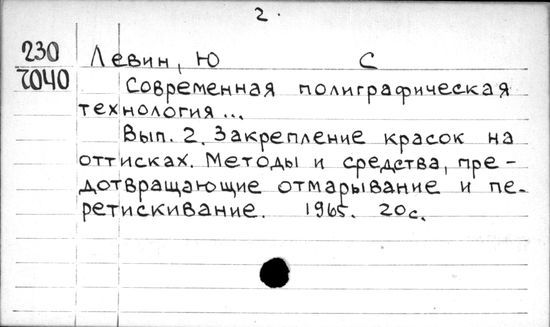 2.
230
7040
Левин, Ю С
Современная полиграфическая
технология...
Вып. 2. Закрепление красок на
оттисках. Методы и средства, пре-
дотвращающие отмарывание и пе-
ретискивание. 1965. 20 с.